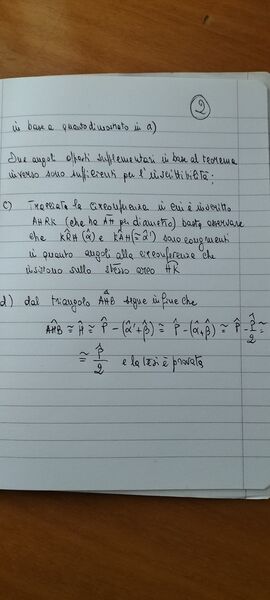 2
in base a quanto dimostrato in a)
Due angoli opposti supplementari in base al teorema
inverso sono sufficienti per l'inscrittibilità;
c) Tracciata la circonferenza in cui è inscritto
AHRK (che ha AH per diametro) basta osservare
che KRH (α̂) e KÂH (≅ α̂') sono congruenti
in quanto angoli alla circonferenza che
insistono sullo stesso arco HK
d) dal triangolo AHB segue infine che
AĤB ≅ Ĥ ≅ P̂ - (α̂' + β̂) ≅ P̂ - (α̂ + β̂) ≅ P̂ - P̂/2 ≅
≅ P̂/2 e la tesi è provata